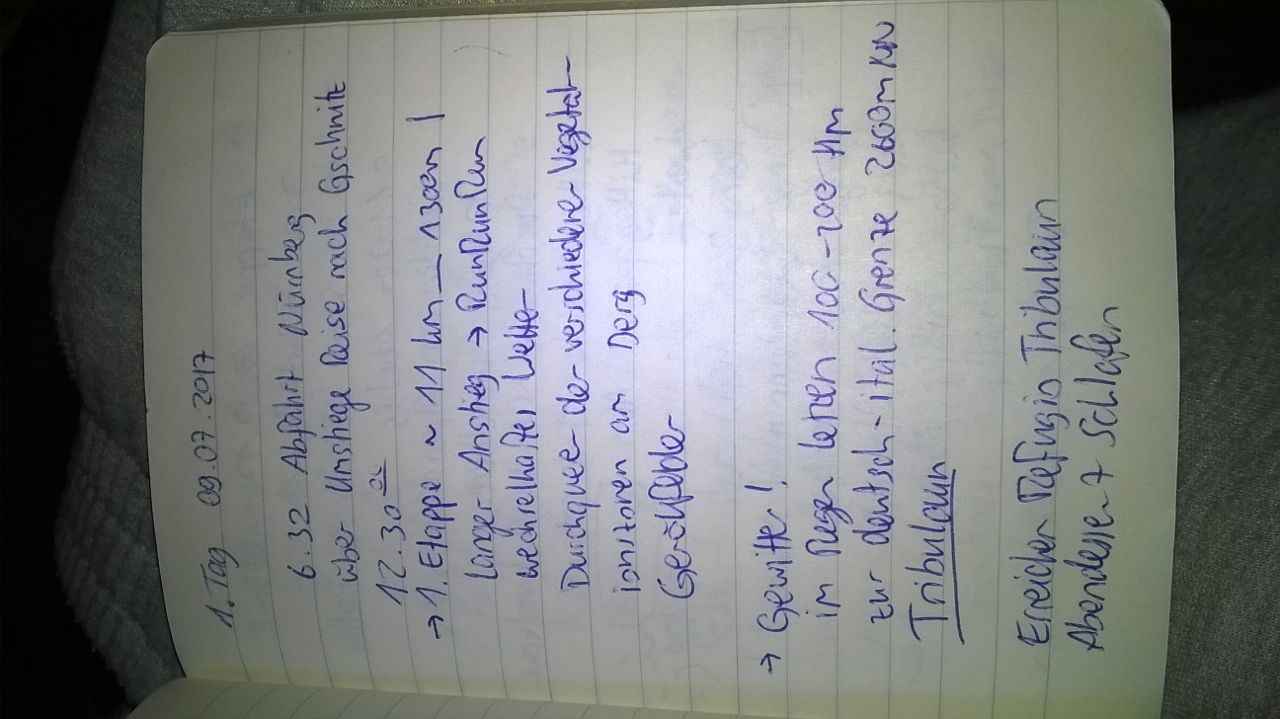 1. Tag 09.07.2017
6.32 Abfahrt Nürnberg
über Umstiege Reise nach Gschnitz
12.30
→ 1. Etappe ~ 11 km 1300m
langer Anstieg → RunRunRun
wechselhaftes Wetter
Durchqueren der verschiedenen Vegetat-
ionszonen am Berg
Geröllfelder
→ Gewitter!
im Regen letzten 100-200 Hm
zur deutsch-ital. Grenze 2600m NN
Tribulaun
Erreichen Refugio Tribulaun
Abendessen + Schlafen